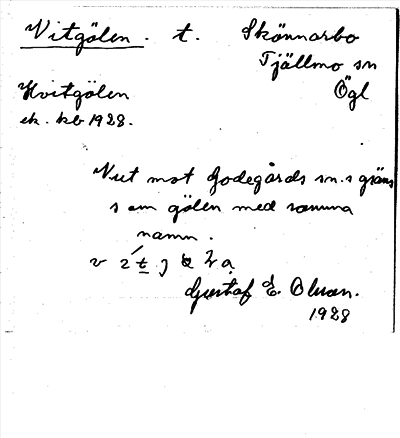 Vitgölen. t. Skönnarbo
Tjällmo sn
Hvitgölen Ögl
ek. kb 1928.
Nut mot Godegårds sn.s gräns
s om gölen med samma
namn.
Gustaf E. Olsson.
1928